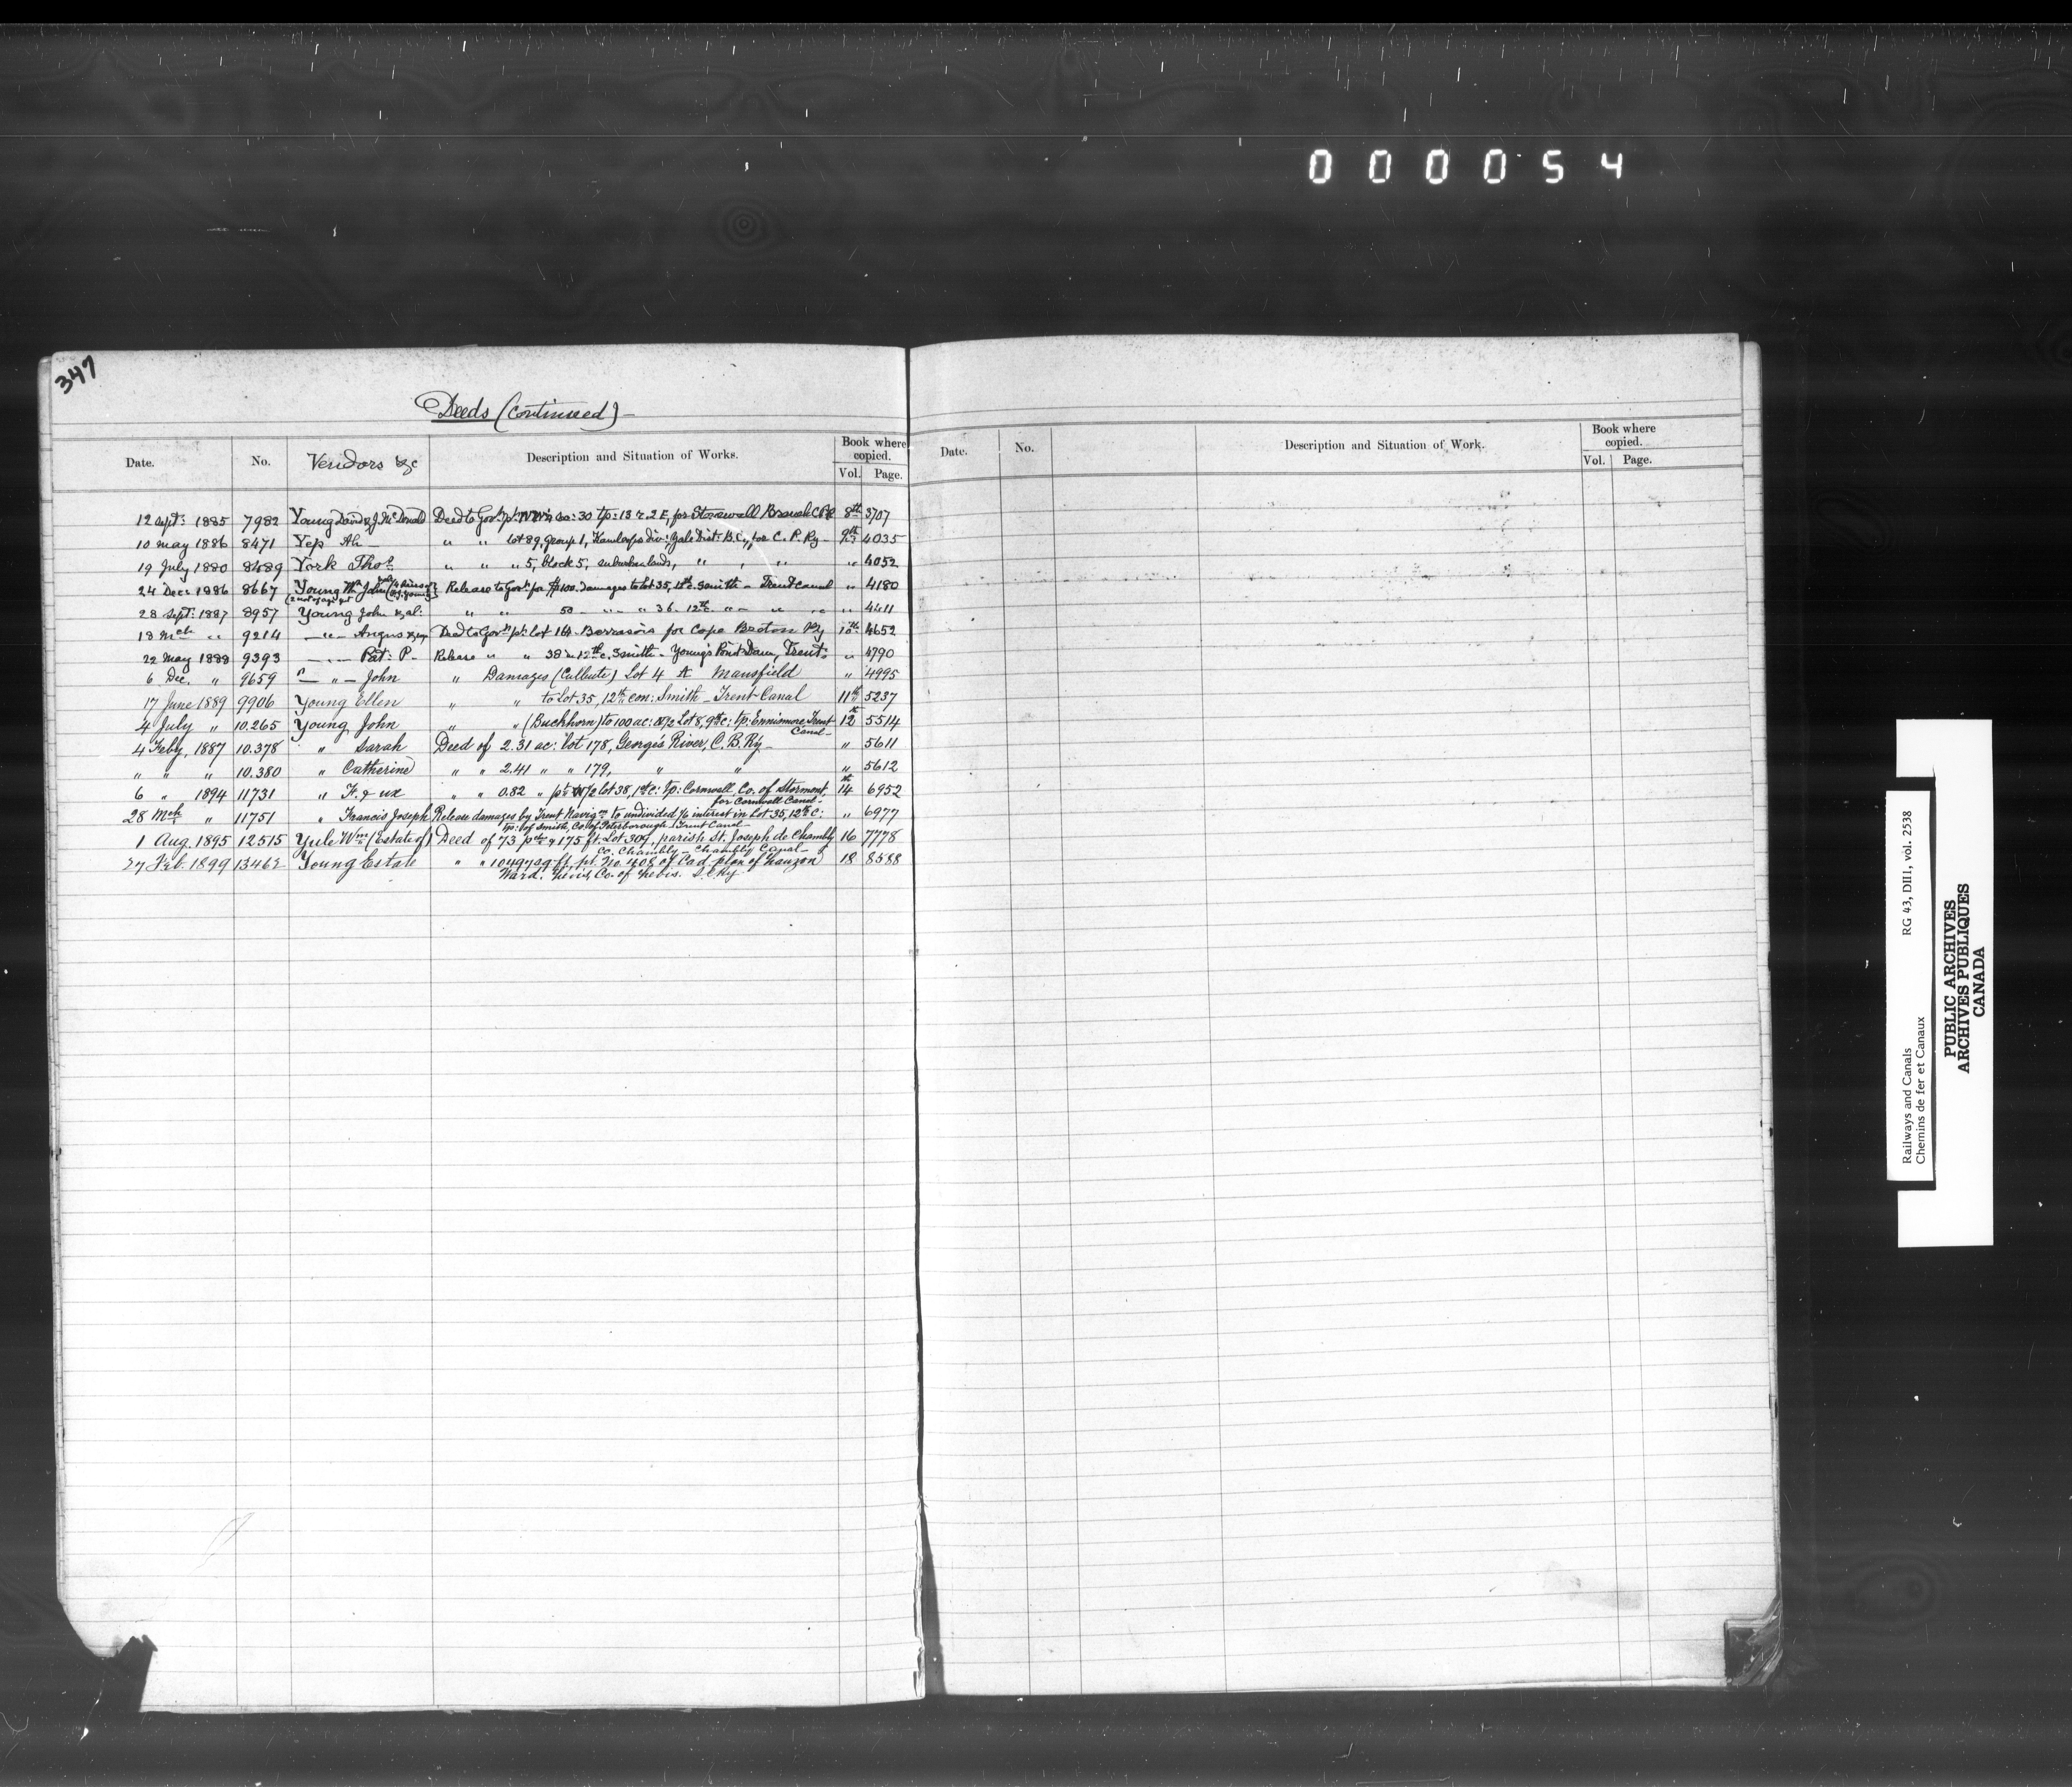 000054
347
Deeds (Continued)-
Date. No. Vendors &c Description and Situation of Works. Book where copied. Vol. Page.
12 Sept: 1885 7982 Young David & J. McDonald Deed to Govt. pt: NW¼ sec: 30 tp: 13 r. 2 E, for Stonewall Branch CPR 8th 3707
10 May 1886 8471 Yep Ah " " lot 89, group 1, Kamloops Div: Yale Dist: B.C., for C. P. Ry- 9th 4035
19 July 1880 8489 York Thos. " " " 5, block 5, suburban lands, " , " " 4052
24 Dec: 1886 8667 Young Wm John
Release to Govt. for $100. Damages to lot 35, 12th c. Smith - Trent Canal " 4180
28 Sept: 1887 8957 Young John & al: " " 50 - " - " 36. 12th c. " - " " " 4411
13 Mch " 9214 -"- Angus Deed to Govt. pt: Lot 164 - Barrasois for Cape Breton Ry 10th 4652
22 May 1888 9393 -"- Pat: P- Release " " 38 in 12th c. Smith - Young's Point Dam, Trent: " 4790
6 Dec. " 9659 -"- John " Damages (Culbute) Lot 4 A Mansfield " 4995
17 June 1889 9906 Young Ellen " to Lot 35, 12th con: Smith - Trent Canal 11th 5237
4 July " 10.265 Young John " " (Buckhorn) to 100 ac: N/2 Lot 8, 9th c: tp: Ennismore Trent 12th 5514
Canal-
4 Feby, 1887 10.378 " Sarah Deed of 2.31 ac: lot 178, George's River, C.B. Ry- " 5611
" " " 10.380 " Catherine " " 2.41 " " 179, " " " 5612
6 " 1894 11731 " F. & ux " " 0.82 " pt: W/2 lot 38, 1st c: tp: Cornwall, Co. of Stormont 14th 6952
for Cornwall Canal-
28 Mch " 11751 " Francis Joseph Release damages by Trent Navign to undivided interest in Lot 35, 12th c: " 6977
tp: of Smith, Co. of Peterborough - Trent Canal-
1 Aug. 1895 12515 Yule Wm (Estate of) Deed of 73 pchs & 175 ft. Lot 304, parish St. Joseph de Chambly 16 7778
Co. Chambly - Chambly Canal-
27 Feb. 1899 13462 Young Estate " " 10497 sq. ft. pt. No. 408 of Cad. plan of Lauzon 18 8588
Ward. Levis, Co. of Levis. I.C.Ry
Date. No. Description and Situation of Work. Book where copied. Vol. Page.
Railways and Canals RG 43, DIII, vol. 2538
Chemins de fer et Canaux
PUBLIC ARCHIVES
ARCHIVES PUBLIQUES
CANADA